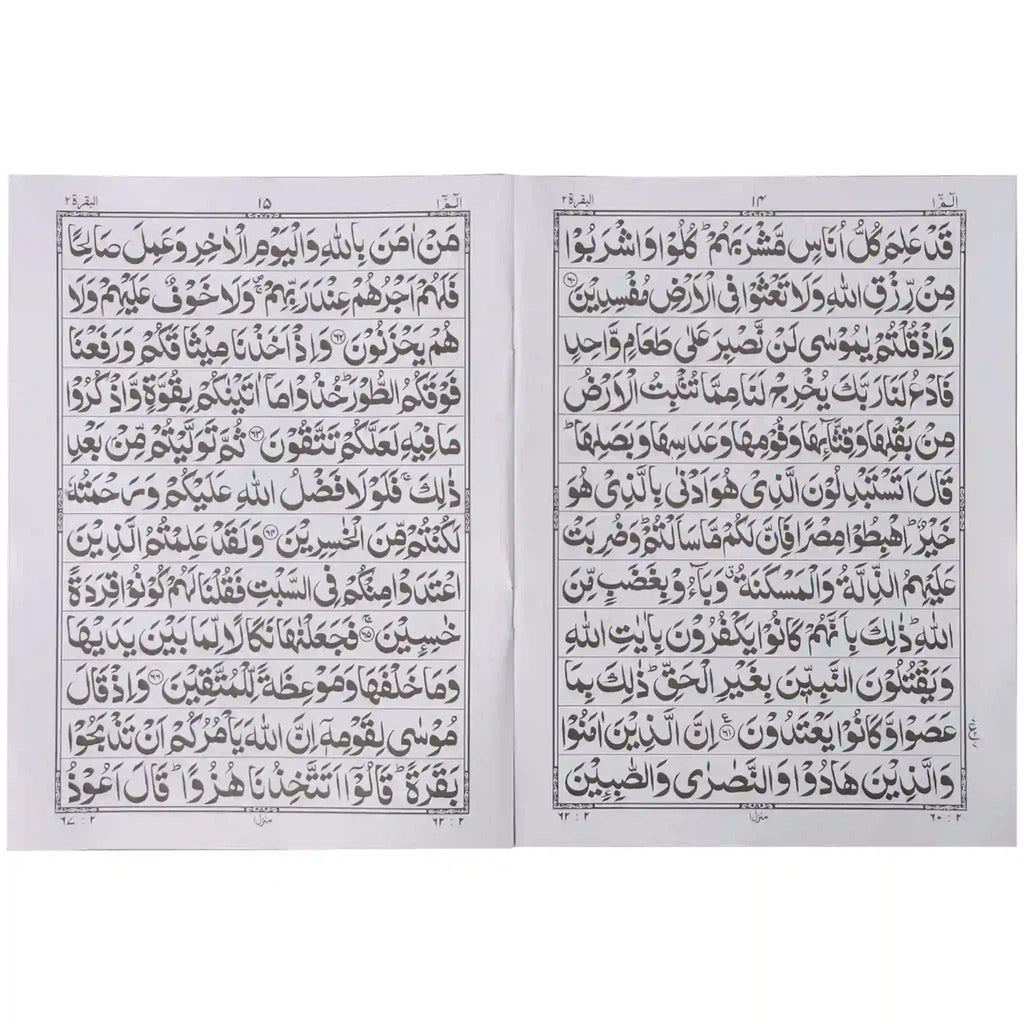 الٓمّٓ ١
١۴
البقرة ٢
قَدْ عَلِمَ كُلُّ اُنَاسٍ مَّشْرَبَهُمْ ؕ كُلُوْا وَاشْرَبُوْا
مِنْ رِّزْقِ اللّٰهِ وَلَا تَعْثَوْا فِى الْاَرْضِ مُفْسِدِيْنَ ﴿۶۰﴾
وَاِذْ قُلْتُمْ يٰمُوْسٰى لَنْ نَّصْبِرَ عَلٰى طَعَامٍ وَّاحِدٍ
فَادْعُ لَنَا رَبَّكَ يُخْرِجْ لَنَا مِمَّا تُنْۢبِتُ الْاَرْضُ
مِنْۢ بَقْلِهَا وَقِثَّآئِهَا وَفُوْمِهَا وَعَدَسِهَا وَبَصَلِهَا ؕ
قَالَ اَتَسْتَبْدِلُوْنَ الَّذِىْ هُوَ اَدْنٰى بِالَّذِىْ هُوَ
خَيْرٌ ؕ اِهْبِطُوْا مِصْرًا فَاِنَّ لَكُمْ مَّا سَاَلْتُمْ ؕ وَضُرِبَتْ
عَلَيْهِمُ الذِّلَّةُ وَالْمَسْكَنَةُ ۗ وَبَآءُوْ بِغَضَبٍ مِّنَ
اللّٰهِ ؕ ذٰلِكَ بِاَنَّهُمْ كَانُوْا يَكْفُرُوْنَ بِاٰيٰتِ اللّٰهِ
وَيَقْتُلُوْنَ النَّبِيّٖنَ بِغَيْرِ الْحَقِّ ؕ ذٰلِكَ بِمَا
عَصَوْا وَّكَانُوْا يَعْتَدُوْنَ ﴿۶۱﴾ اِنَّ الَّذِيْنَ اٰمَنُوْا
وَالَّذِيْنَ هَادُوْا وَالنَّصٰرٰى وَالصّٰبِـِٕيْنَ
٢ : ۶۰
منزل ١
٢ : ۶٢
الٓمّٓ ١
١۵
البقرة ٢
مَنْ اٰمَنَ بِاللّٰهِ وَالْيَوْمِ الْاٰخِرِ وَعَمِلَ صَالِحًا
فَلَهُمْ اَجْرُهُمْ عِنْدَ رَبِّهِمْ ۚ وَلَا خَوْفٌ عَلَيْهِمْ وَلَا
هُمْ يَحْزَنُوْنَ ﴿۶۲﴾ وَاِذْ اَخَذْنَا مِيْثَاقَكُمْ وَرَفَعْنَا
فَوْقَكُمُ الطُّوْرَ ؕ خُذُوْا مَآ اٰتَيْنٰكُمْ بِقُوَّةٍ وَّاذْكُرُوْا
مَا فِيْهِ لَعَلَّكُمْ تَتَّقُوْنَ ﴿۶۳﴾ ثُمَّ تَوَلَّيْتُمْ مِّنْۢ بَعْدِ
ذٰلِكَ ۚ فَلَوْلَا فَضْلُ اللّٰهِ عَلَيْكُمْ وَرَحْمَتُهٗ
لَكُنْتُمْ مِّنَ الْخٰسِرِيْنَ ﴿۶۴﴾ وَلَقَدْ عَلِمْتُمُ الَّذِيْنَ
اعْتَدَوْا مِنْكُمْ فِى السَّبْتِ فَقُلْنَا لَهُمْ كُوْنُوْا قِرَدَةً
خٰسِـِٕيْنَ ﴿۶۵﴾ فَجَعَلْنٰهَا نَكَالًا لِّمَا بَيْنَ يَدَيْهَا
وَمَا خَلْفَهَا وَمَوْعِظَةً لِّلْمُتَّقِيْنَ ﴿۶۶﴾ وَاِذْ قَالَ
مُوْسٰى لِقَوْمِهٖٓ اِنَّ اللّٰهَ يَاْمُرُكُمْ اَنْ تَذْبَحُوْا
بَقَرَةً ؕ قَالُوْٓا اَتَتَّخِذُنَا هُزُوًا ؕ قَالَ اَعُوْذُ
٢ : ۶٢
منزل ١
٢ : ۶٧